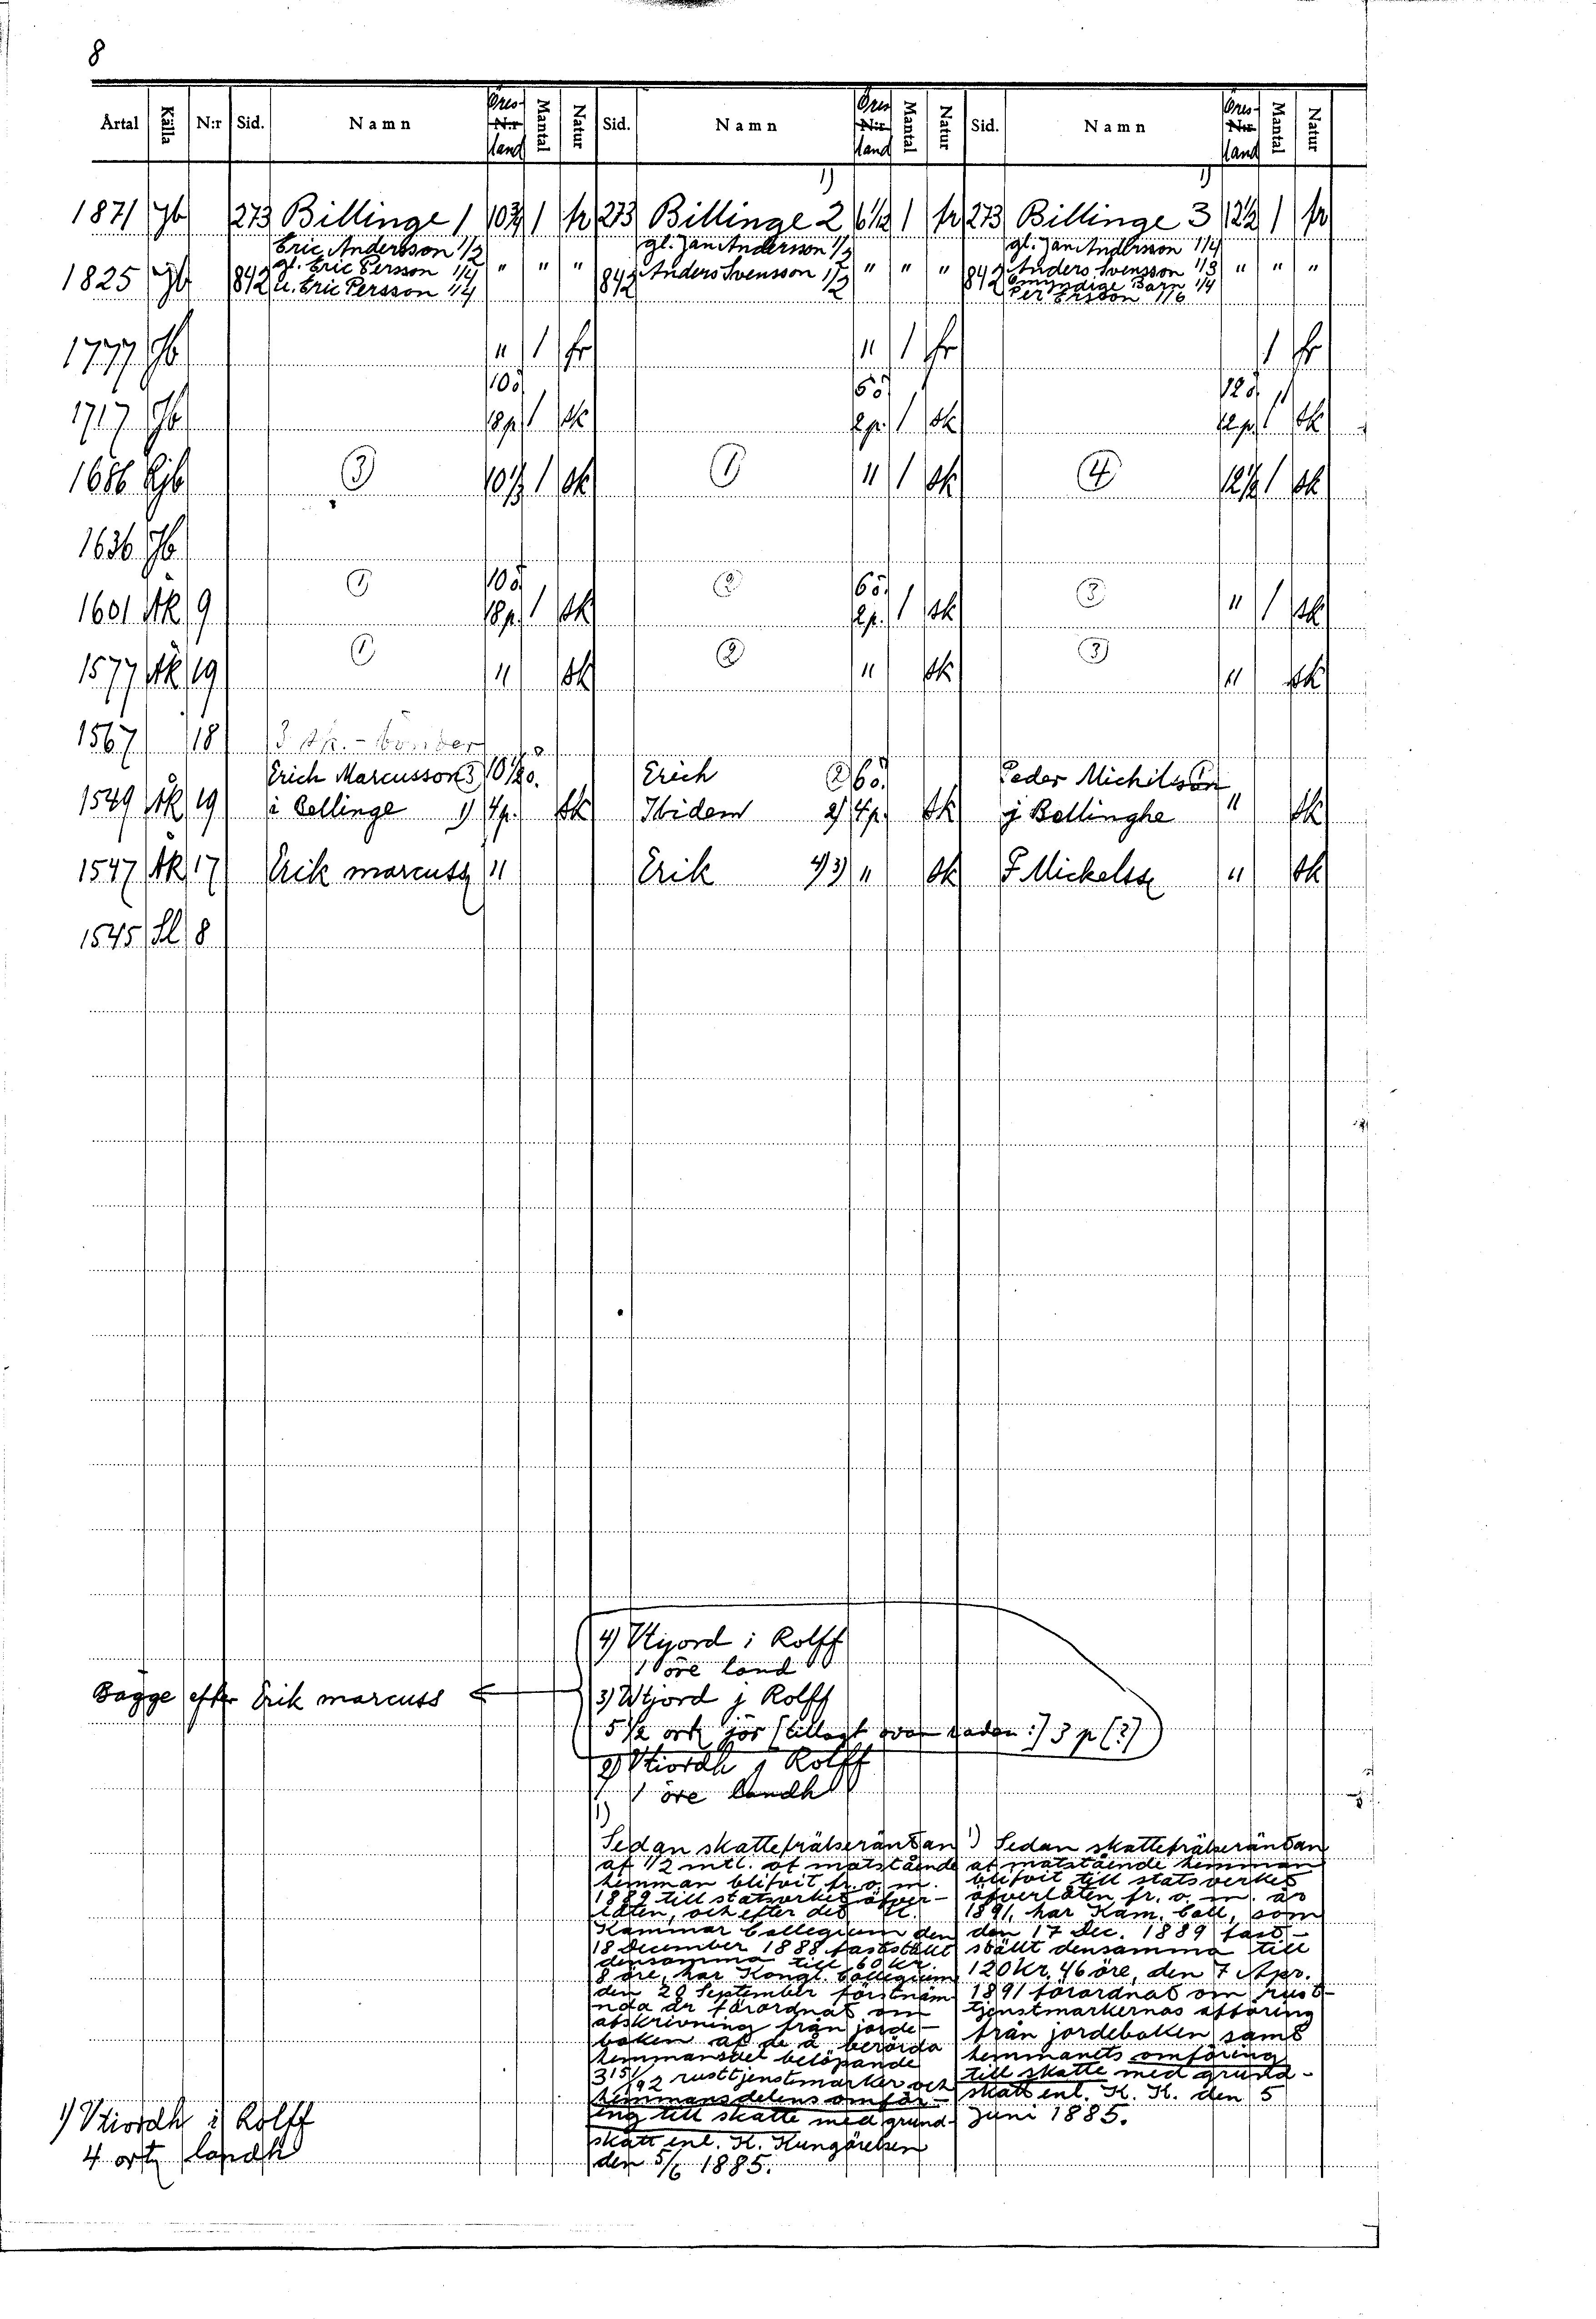 8
Årtal Källa N:r Sid. Namn Öres- N:r land Mantal Natur Sid. Namn Öres N:r land Mantal Natur Sid. Namn Öres- N:r land Mantal Natur
1) 1)
1871 Jb 273 Billinge 1 1 fr 273 Billinge 2 6 1/12 1 fr 273 Billinge 3 12 1/2 1 fr
Eric Andersson 1/2 gl. Jan Andersson 1/2 gl. Jan Andersson 1/4
1825 Jb 842 gl. Eric Persson 1/4 " " " 842 Anders Svensson 1/2 " " " 842 Anders Svensson 1/3 " " "
u. Eric Persson 1/4 Omyndige Barn 1/4
Per Ersson 1/6
1777 Jb " 1 fr " 1 fr 1 fr
10ö 6ö 12ö
1717 Jb 18p 1 sk 2p. 1 sk 12p 1 sk
1686 Rjb 3 1 sk 1 " 1 sk 4 12 1/2 1 sk
1636 Jb
1 10ö 2 6ö 3
1601 Åk 9 18p. 1 sk 2p. 1 sk " 1 sk
1577 Åk 19 1 " sk 2 " sk 3 " sk
1567 18 3 sk.-bönder
Erich Marcusson 3 Erich 2 6ö Peder Michilson 1
1549 Åk 19 i Bellinge 1) 4p. sk Ibidem 2) 4p. sk j Bellinghe " sk
1547 Åk 17 Erik marcuss " Erik 4) 3) " sk P Mickelss " sk
1545 Sl 8
4) Utjord i Rolff
1 öre land
Bagge efter Erik marcuss ← 3) Wtjord j Rolff
5 1/2 ort jör (tillagt ovan raden :) 3 p (?)
2) Vtiordh j Rolff
1 öre landh
1)
Sedan skattefrälseräntan
af 1/2 mtl. af motstående
hemman blifvit fr. o. m.
1889 till statsverket öfver-
låten, och efter det K.
Kammar Collegium den
18 December 1888 fastställt
densamma till 60 kr.
8 öre, har Kongl. Collegium
den 28 September förstnäm
nda år förordnat om
afskrivning från jorde-
boken af de å berörda
hemmansdel belöpande
315/192 rusttjenstmarker och
hemmansdelens omför-
ing till skatte med grund-
skatt enl. K. Kungörelsen
den 5/6 1885.
1) Sedan skattefrälseräntan
af motstående hemman
blifvit till statsverket
öfverlåten fr. o. m. år
1891, har Kam. Coll., som
den 17 Dec. 1889 fast-
ställt densamma till
120 Kr. 46 öre, den 7 Apr.
1891 förordnat om rust-
tjenstmarkernas afföring
från jordeboken samt
hemmanets omföring
till skatte med grund-
skatt enl. K. K. den 5
Juni 1885.
1) Vtiordh i Rolff
4 ort landh